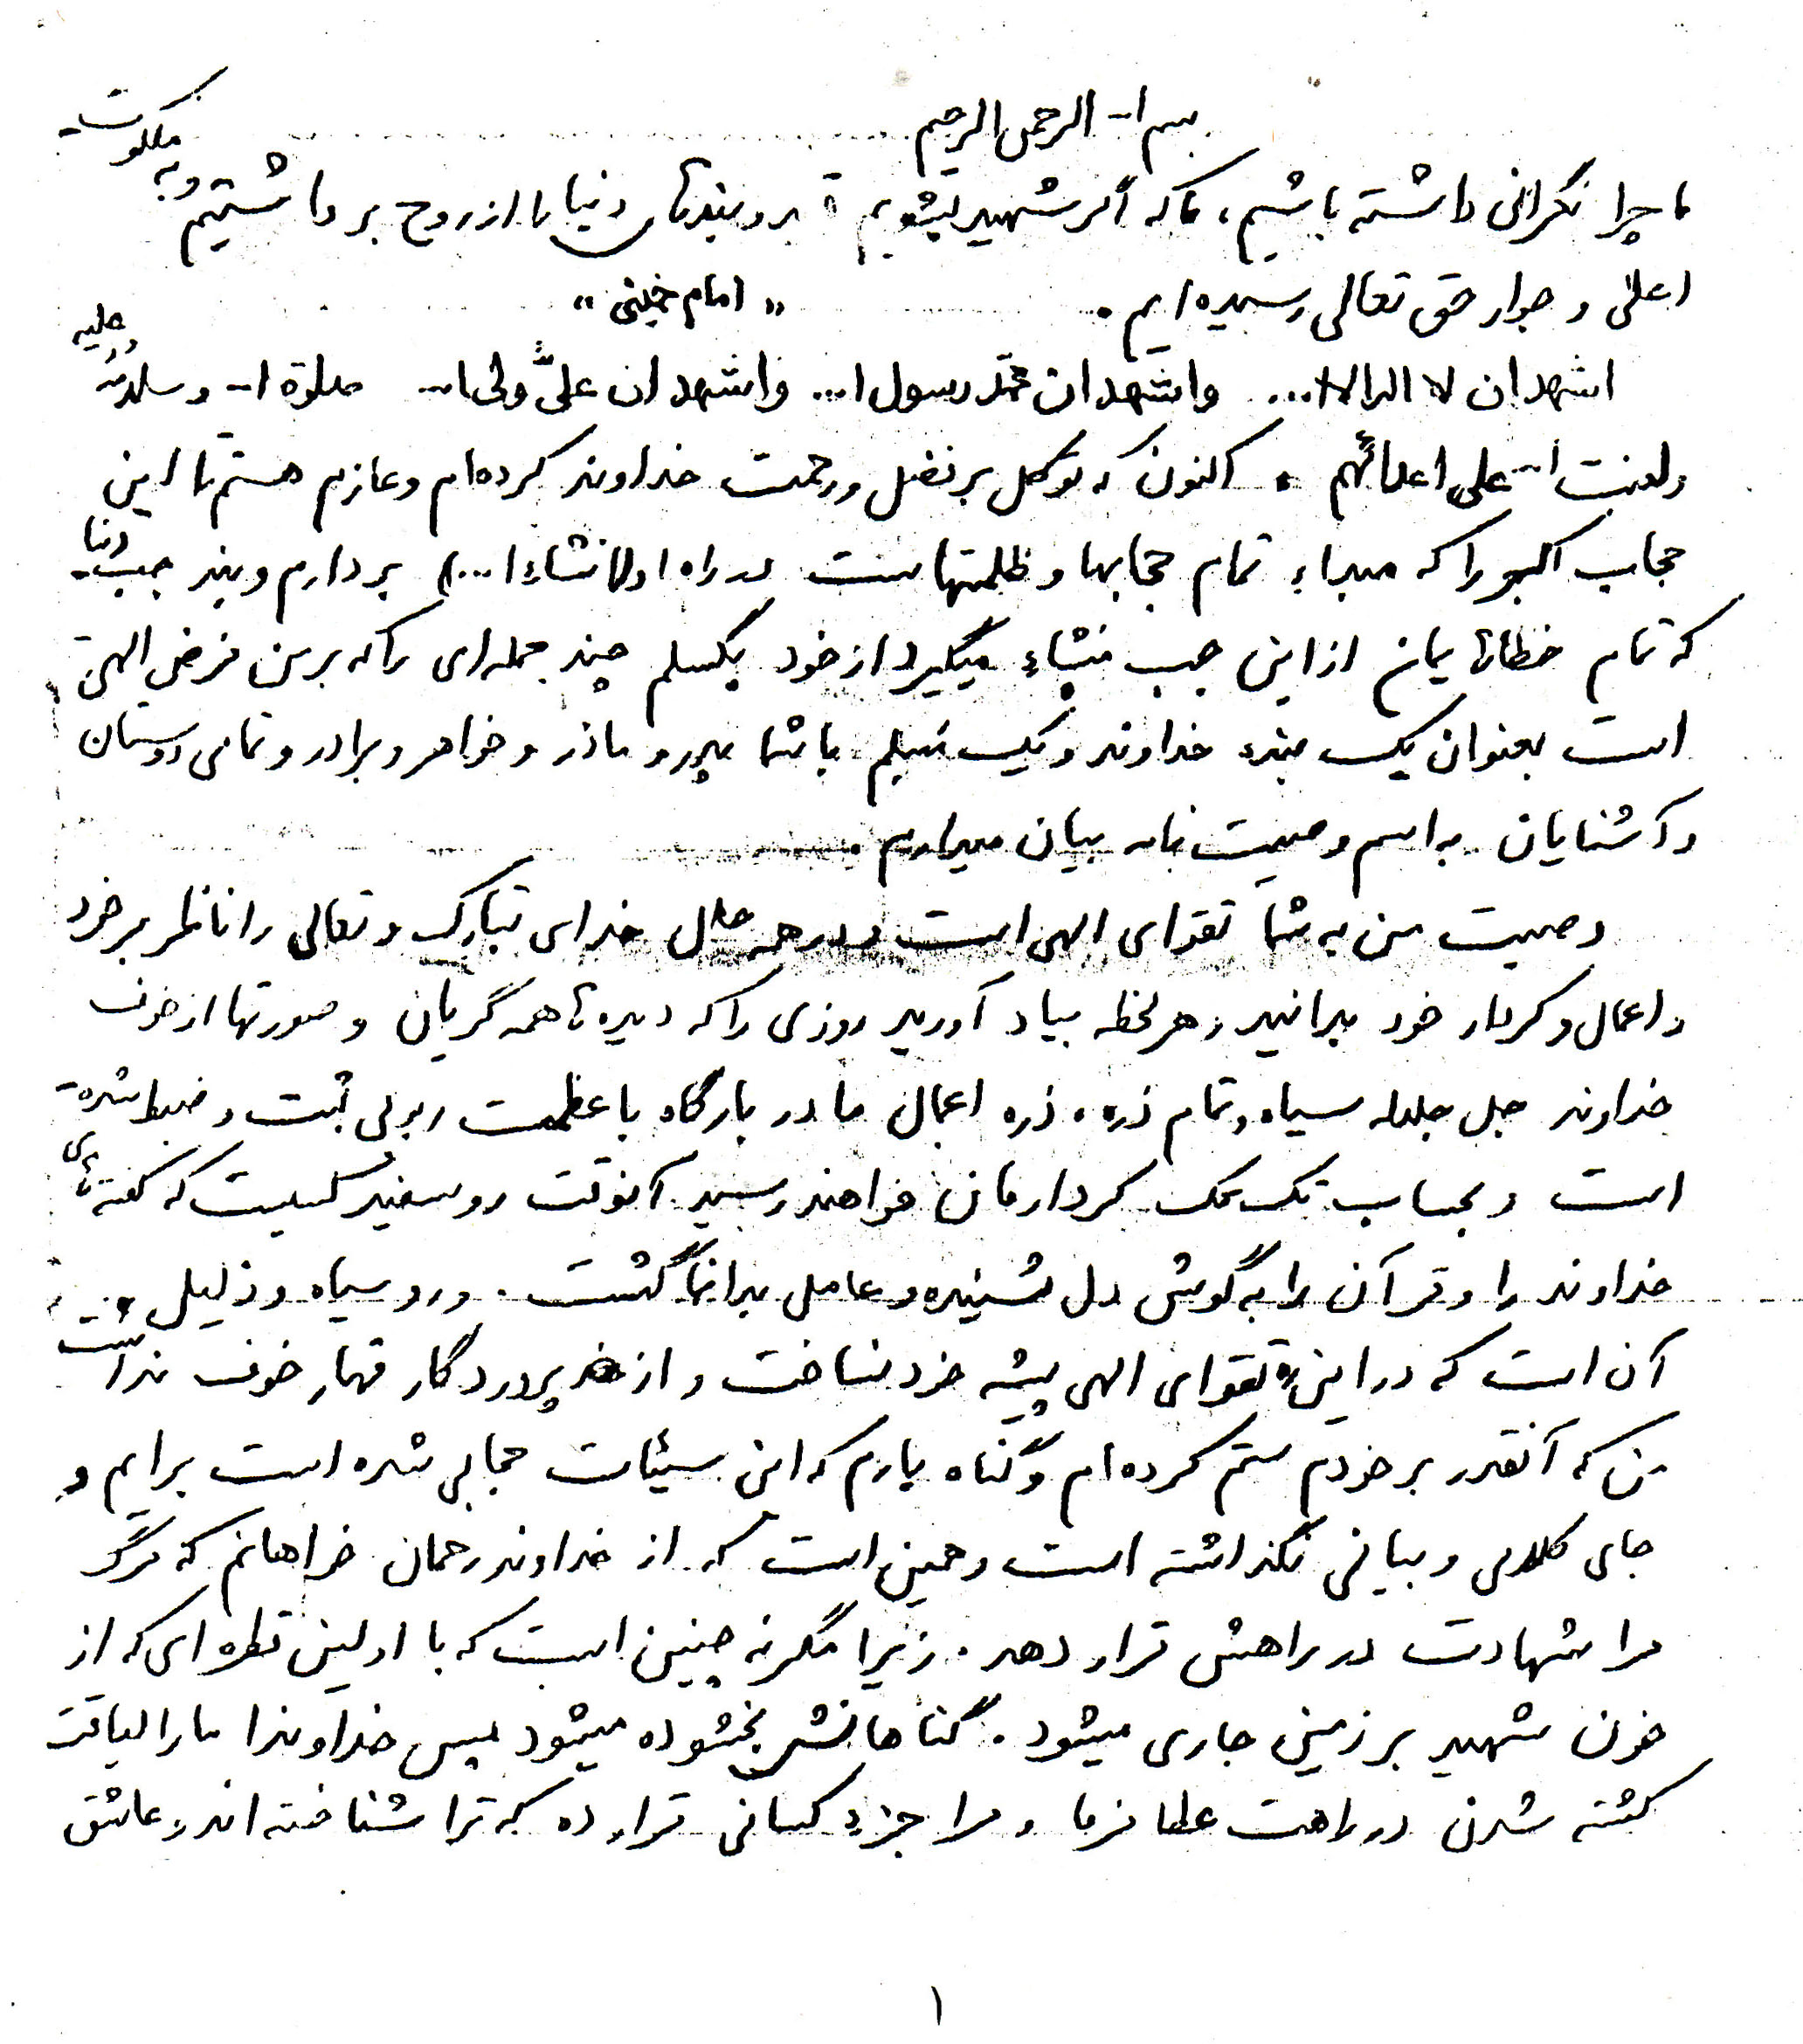 بسم ا... الرحمن الرحیم
ما چرا نگرانی داشته باشیم، ما که اگر شهید بشویم بندهای دنیا را از روح برداشتیم و به ملکوت
اعلی و جوار حق تعالی رسیده‌ایم. «امام خمینی»
اشهد ان لا اله الا ا... واشهد ان محمد رسول ا... واشهد ان علیّ ولی ا... صلوة ا... و سلامه علیه
ولعنت ا... علی اعدائهم. اکنون که توکل بر فضل و رحمت خداوند کرده‌ام و عازم هستم تا این
حجاب اکبر را که مبداء تمام حجابها و ظلمتهاست در راه او (انشاءا...) بردارم و بند حب دنیا
که تمام خطاهایمان از این حب منشاء میگیرد از خود بگسلم چند جمله‌ای را که بر من فرض الهی
است بعنوان یک بنده خداوند و یک مسلم با شما پدر و مادر و خواهر و برادر و تمامی دوستان
و آشنایان به اسم وصیت نامه بیان میدارم.
وصیت من به شما تقوای الهی است و در همه حال خدای تبارک و تعالی را ناظر بر خود
و اعمال و کردار خود بدانید و هر لحظه بیاد آورید روزی را که دیده‌ها همه گریان و صورتها از خوف
خداوند جل جلاله سیاه و تمام ذره ذره اعمال ما در بارگاه با عظمت ربوبی ثبت و ضبط شده
است و بحساب تک تک کردارمان خواهند رسید. آنوقت روسفید کسیست که گفته‌های
خداوند را و قرآن را به گوش دل شنیده و عامل بدانها گشت. و رو سیاه و ذلیل
آن است که در این تقوای الهی پیشه خود نساخت و از پروردگار قهار خوف نداشت
من که آنقدر بر خودم ستم کرده‌ام و گناه بارم که این سیئات حجابی شده است برایم و
جای کلامی و بیانی نگذاشته است و همین است که از خداوند رحمان خواهانم که مرگ
مرا شهادت در راهش قرار دهد. زیرا مگر نه چنین است که با اولین قطره‌ای که از
خون شهید بر زمین جاری میشود. گناهانش بخشوده میشود پس خداوندا ما را لیاقت
کشته شدن در راهت عطا فرما و مرا جزء کسانی قرار ده که ترا شناخته‌اند و عاشق
۱